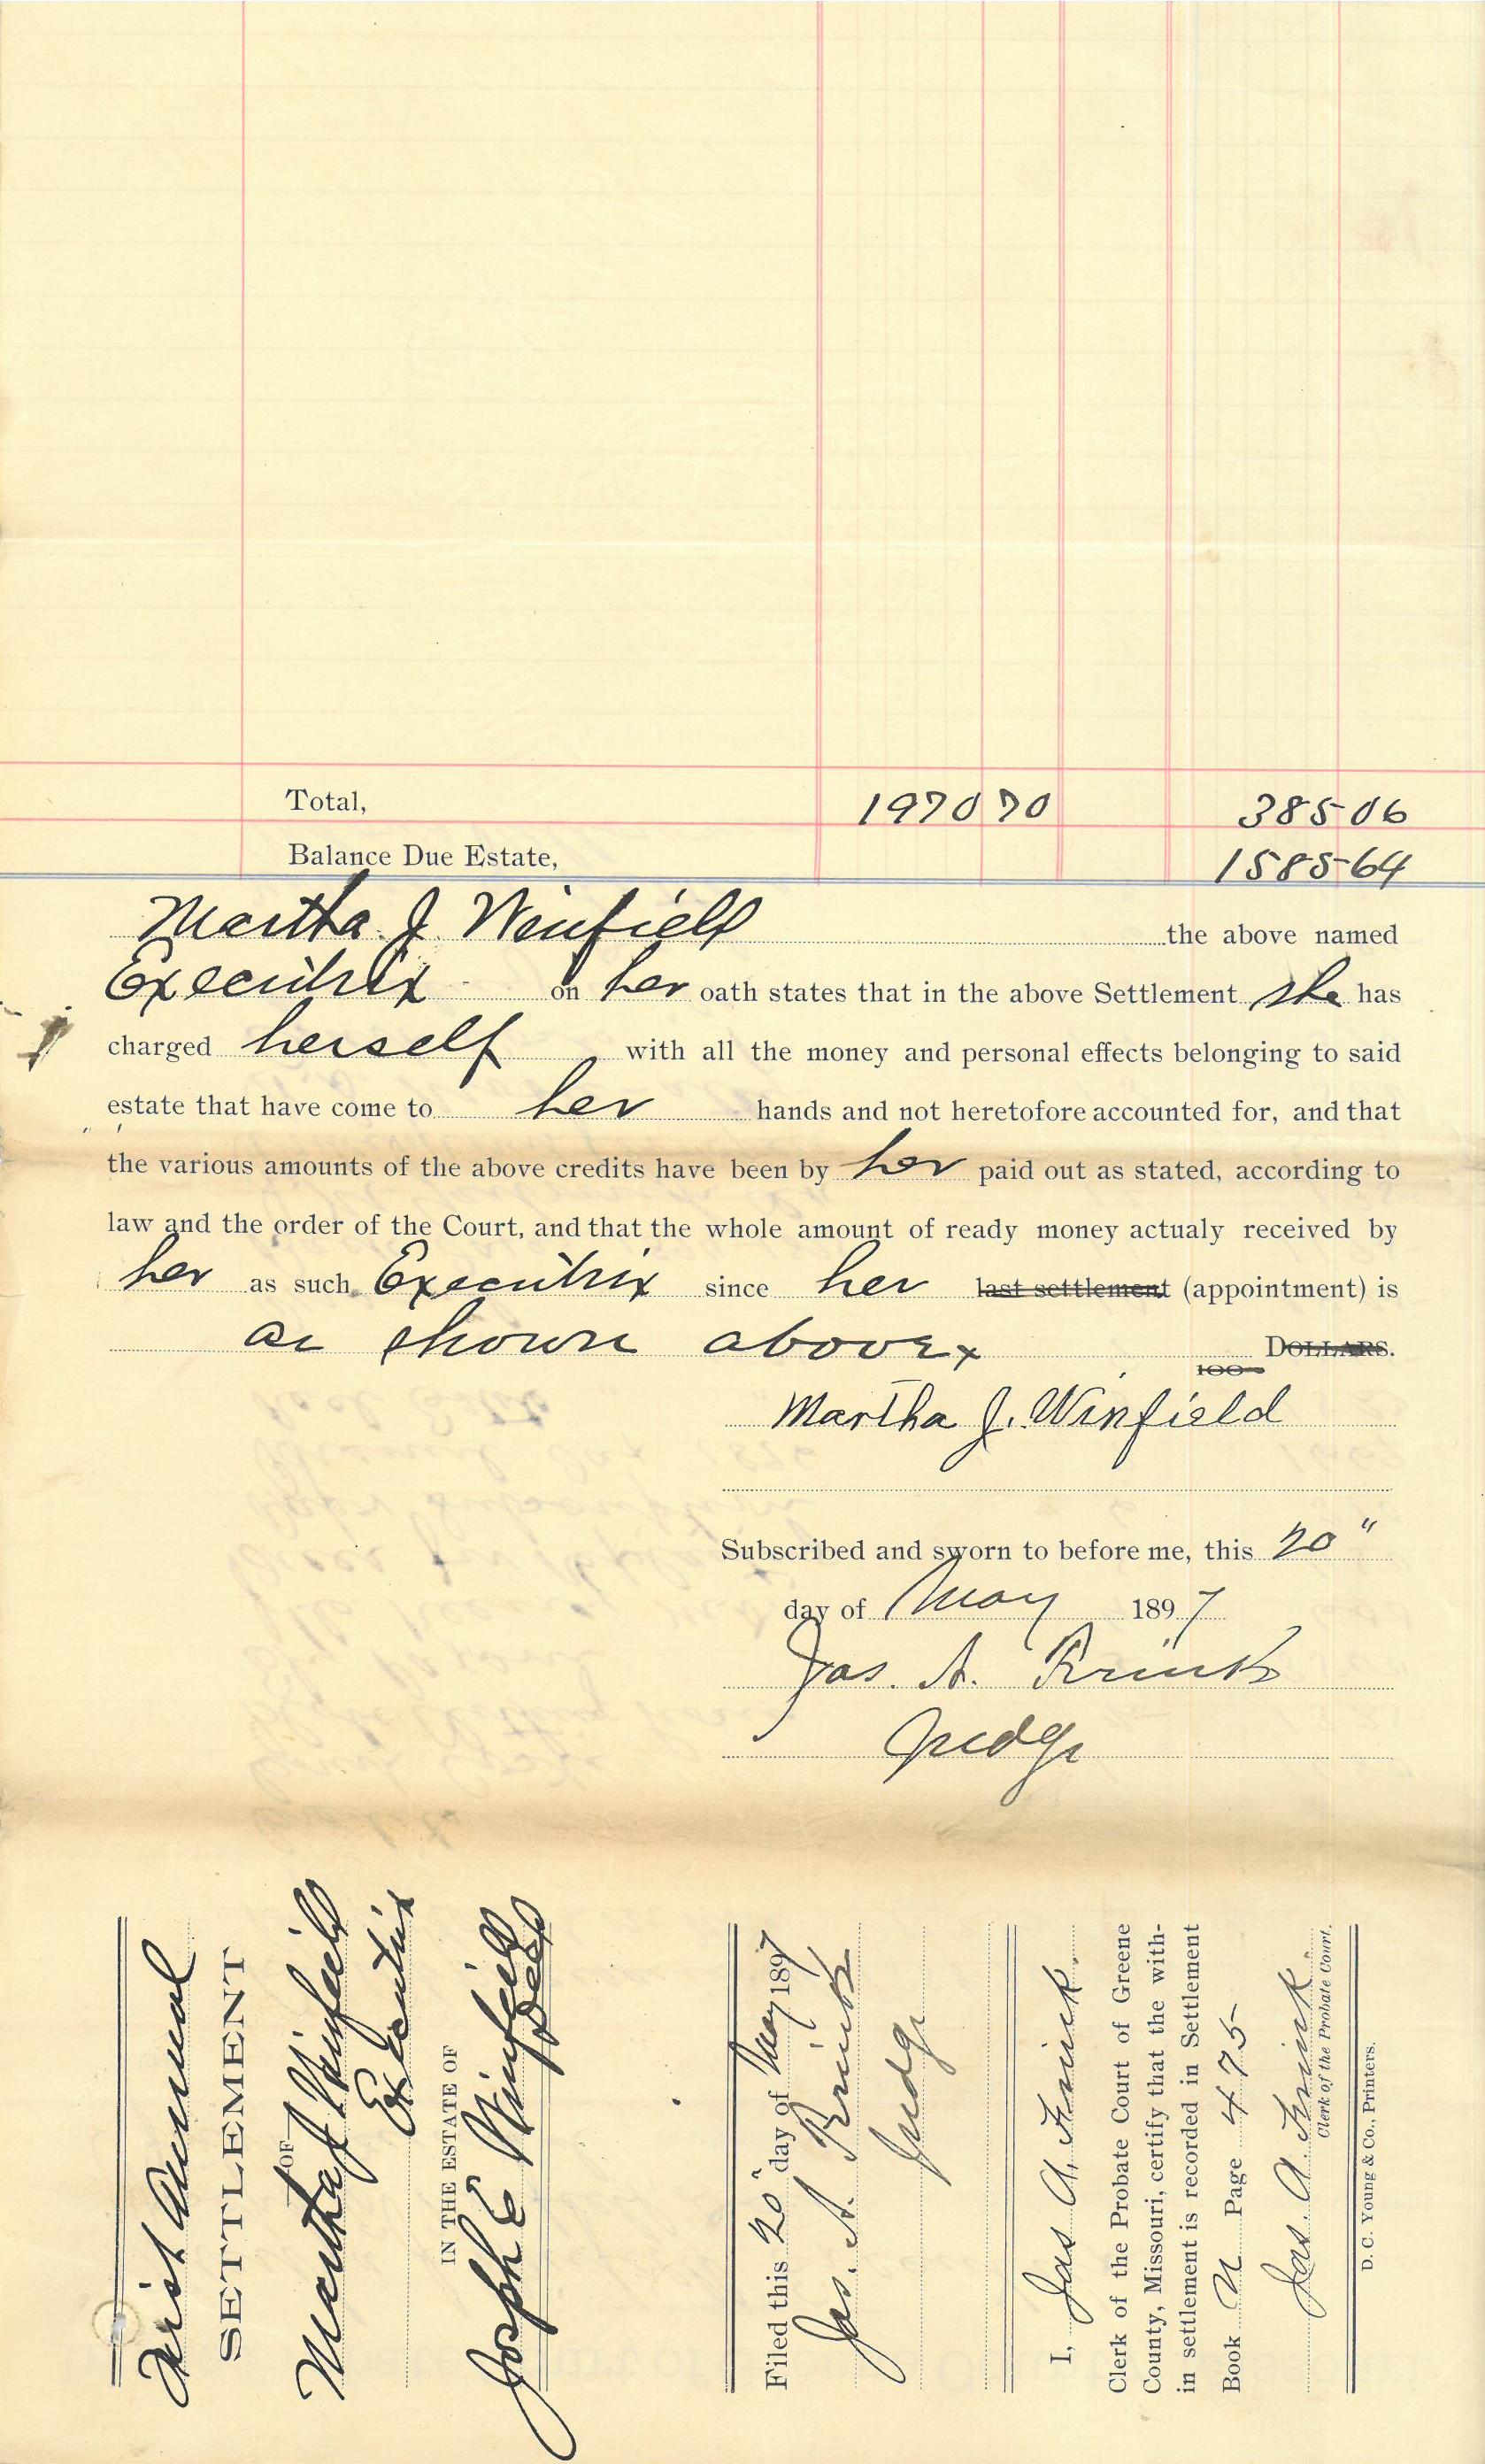 Total, 1970 70 385 06
Balance Due Estate, 1585 64
Martha J Winfield the above named
Executrix on her oath states that in the above Settlement she has
charged herself with all the money and personal effects belonging to said
estate that have come to her hands and not heretofore accounted for, and that
the various amounts of the above credits have been by her paid out as stated, according to
law and the order of the Court, and that the whole amount of ready money actualy received by
her as such Executrix since her last settlement (appointment) is
as shown above DOLLARS.
100
Martha J. Winfield
Subscribed and sworn to before me, this 20"
day of May 1897
Jas. A. Frink
Judge
First Annual
SETTLEMENT
OF
Martha J Winfield
Executrix
IN THE ESTATE OF
Joseph E Winfield
Decd
Filed this 20" day of May 1897
Jas. A. Frink
Judge
I, Jas A. Frink.
Clerk of the Probate Court of Greene
County, Missouri, certify that the with-
in settlement is recorded in Settlement
Book U Page 475
Jas. A Frink.
Clerk of the Probate Court.
D. C. Young & Co., Printers.